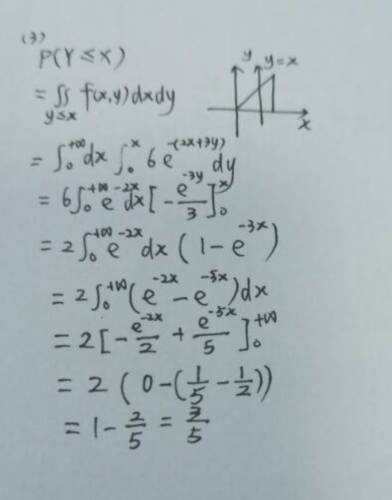 (3)
P(Y≤X)
y y=x
x
= ∬_{y≤x} f(x,y)dxdy
= ∫₀^{+∞} dx ∫₀^{x} 6e^{-(2x+3y)} dy
= 6∫₀^{+∞} e^{-2x} dx [-e^{-3y}/3]₀^{x}
= 2∫₀^{+∞} e^{-2x} dx (1-e^{-3x})
= 2∫₀^{+∞} (e^{-2x} - e^{-5x})dx
= 2[-e^{-2x}/2 + e^{-5x}/5]₀^{+∞}
= 2 (0-(1/5 - 1/2))
= 1 - 2/5 = 3/5